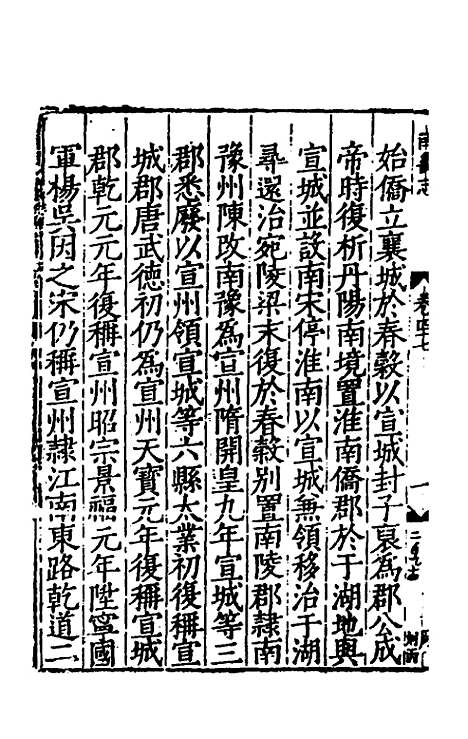 始僑立襄城於春穀以宣城封子裒為郡公成
帝時復析丹陽南境置淮南僑郡於于湖地與
宣城並設南宋停淮南以宣城兼領移治于湖
尋還治宛陵梁末復於春穀別置南陵郡隸南
豫州陳改南豫為宣州隋開皇九年宣城等三
郡悉廢以宣州領宣城等六縣大業初復稱宣
城郡唐武德初仍為宣州天寶元年復稱宣城
郡乾元元年復稱宣州昭宗景福元年陞寧國
軍楊吳因之宋仍稱宣州隸江南東路乾道二